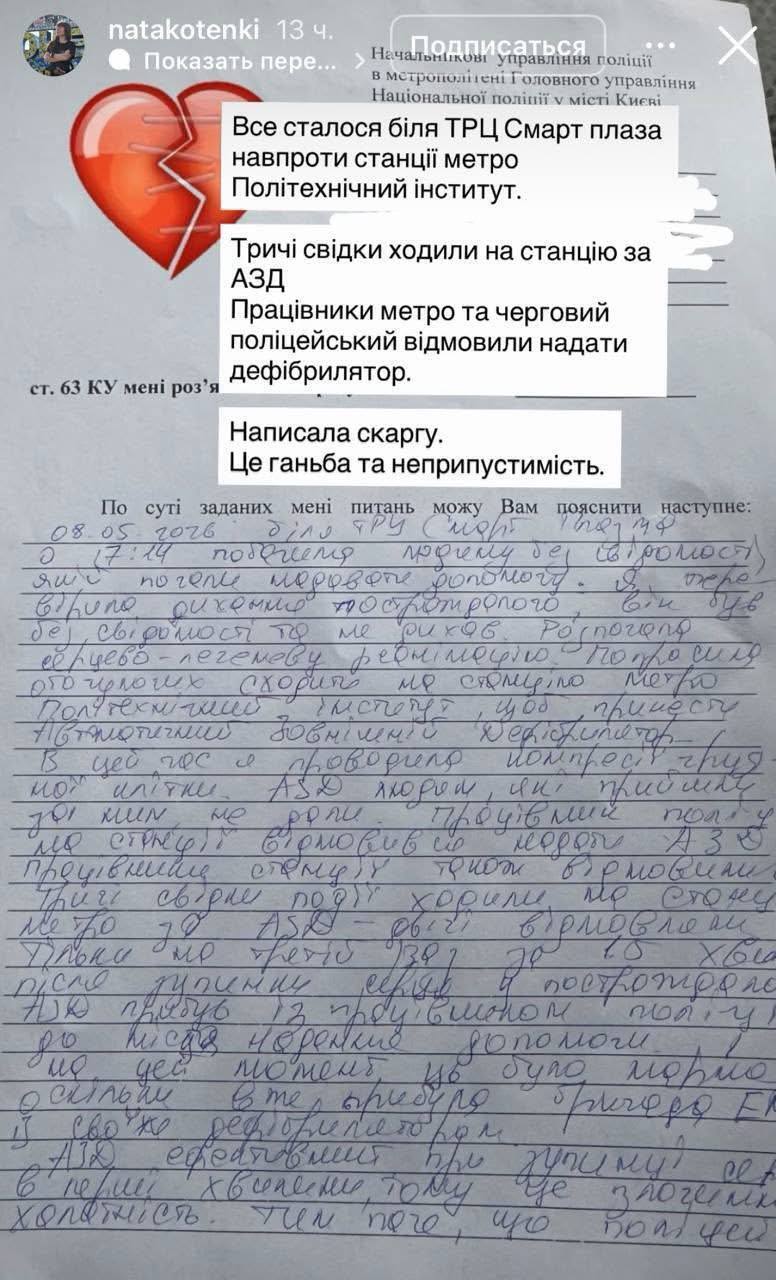 natakotenki 13 ч.
Показать пере... >
Подписаться
Начальникові управління поліції
в метрополітені Головного управління
Національної поліції у місті Києві
Все сталося біля ТРЦ Смарт плаза
навпроти станції метро
Політехнічний інститут.
Тричі свідки ходили на станцію за
АЗД
Працівники метро та черговий
поліцейський відмовили надати
дефібрилятор.
ст. 63 КУ мені роз’я
Написала скаргу.
Це ганьба та неприпустимість.
По суті заданих мені питань можу Вам пояснити наступне:
08.05.2026 біля ТРЦ Смарт плаза
о 17:14 побачила людину без свідомості,
якій почали надавати допомогу. Я пере-
вірила дихання постраждалого, він був
без свідомості та не дихав. Розпочала
серцево-легеневу реанімацію. Попросила
оточуючих сходить на станцію метро
Політехничний інститут, щоб принести
Автоматичний Зовнішній Дефібрилятор.
В цей час я проводила компресії груд-
ної клітки. АЗД людям, які прийшли
за ним, не дали. Працівник поліц
на станції відмовився надати АЗД
працівники станції також відмовили.
Тричі свідки події ходили на станц
метро за АЗД – двічі відмовляли
Тільки на третій раз за 15 хвил
після зупинки серця у постраждало
АЗД прибув із працівником поліці
до місця надання допомоги, і
на цей момент це було марно
оскільки вже прибула бригада Е
із своїм дефібрилятором.
АЗД ефективний при зупинці се
в перші хвилини, тому це злочинн
халатність. Тим паче, що поліцей